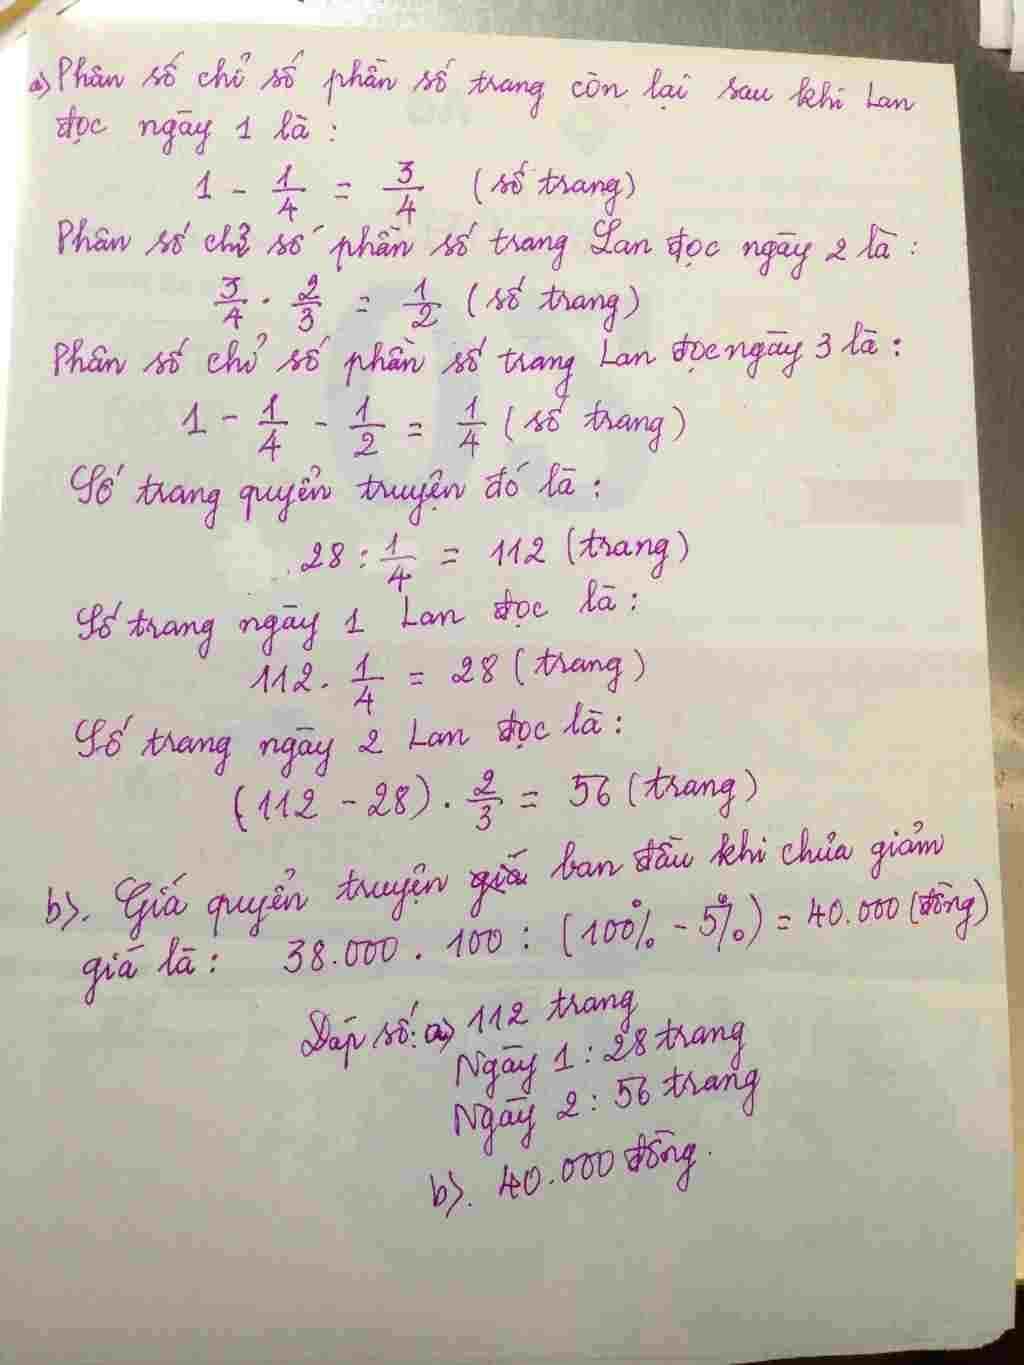 a) Phân số chỉ số phần số trang còn lại sau khi Lan
đọc ngày 1 là :
1 - 1/4 = 3/4 (số trang)
Phân số chỉ số phần số trang Lan đọc ngày 2 là :
3/4 . 2/3 = 1/2 (số trang)
Phân số chỉ số phần số trang Lan đọc ngày 3 là :
1 - 1/4 - 1/2 = 1/4 (số trang)
Số trang quyển truyện đó là :
28 : 1/4 = 112 (trang)
Số trang ngày 1 Lan đọc là :
112 . 1/4 = 28 (trang)
Số trang ngày 2 Lan đọc là :
(112 - 28) . 2/3 = 56 (trang)
b). Giá quyển truyện giá ban đầu khi chưa giảm
giá là : 38.000 . 100 : (100% - 5%) = 40.000 (đồng)
Đáp số : a) 112 trang
Ngày 1 : 28 trang
Ngày 2 : 56 trang
b). 40.000 đồng.